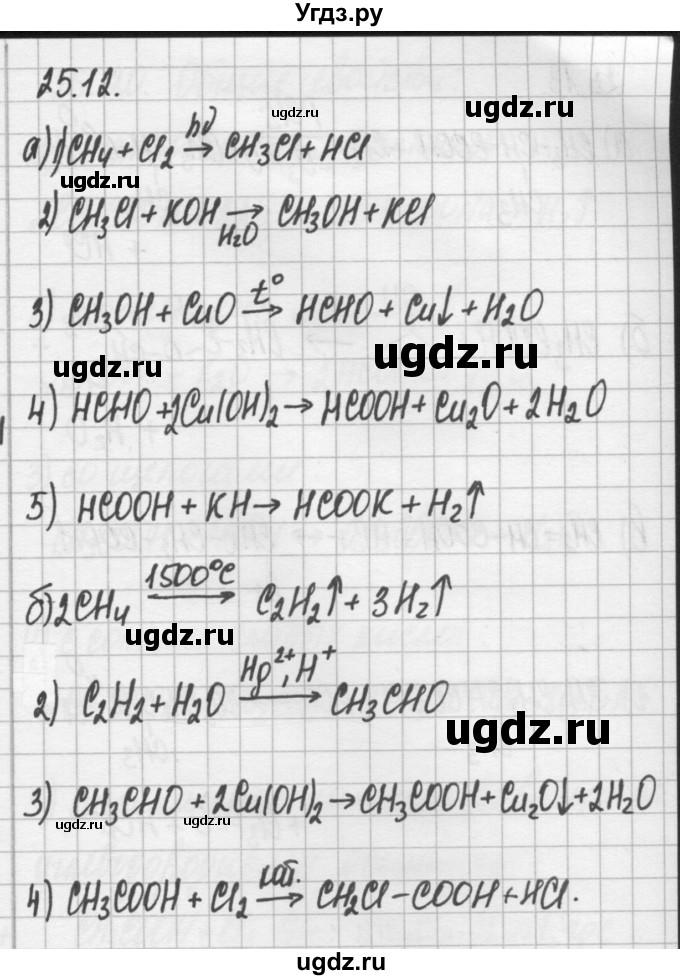 Угдз.ру
25.12.
ugdz.ru ugdz.ru
а) 1) CH4 + Cl2 →hν CH3Cl + HCl
ugdz.ru
2) CH3Cl + KOH →H2O CH3OH + KCl
3) CH3OH + CuO →t° HCHO + Cu↓ + H2O
ugdz.ru ugdz.ru
4) HCHO + 2Cu(OH)2 → HCOOH + Cu2O + 2H2O
5) HCOOH + KH → HCOOK + H2↑
б) 2CH4 →1500°C C2H2↑ + 3H2↑
ugdz.ru
2) C2H2 + H2O →Hg2+, H+ CH3CHO
ugdz.ru
3) CH3CHO + 2Cu(OH)2 → CH3COOH + Cu2O↓ + 2H2O
ugdz.ru ugdz.ru
4) CH3COOH + Cl2 →кат. CH2Cl–COOH + HCl.
ugdz.ru